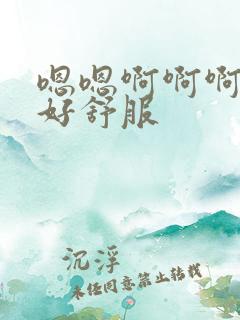 嗯嗯啊啊啊
好舒服
沉浮
未经同意禁止转载